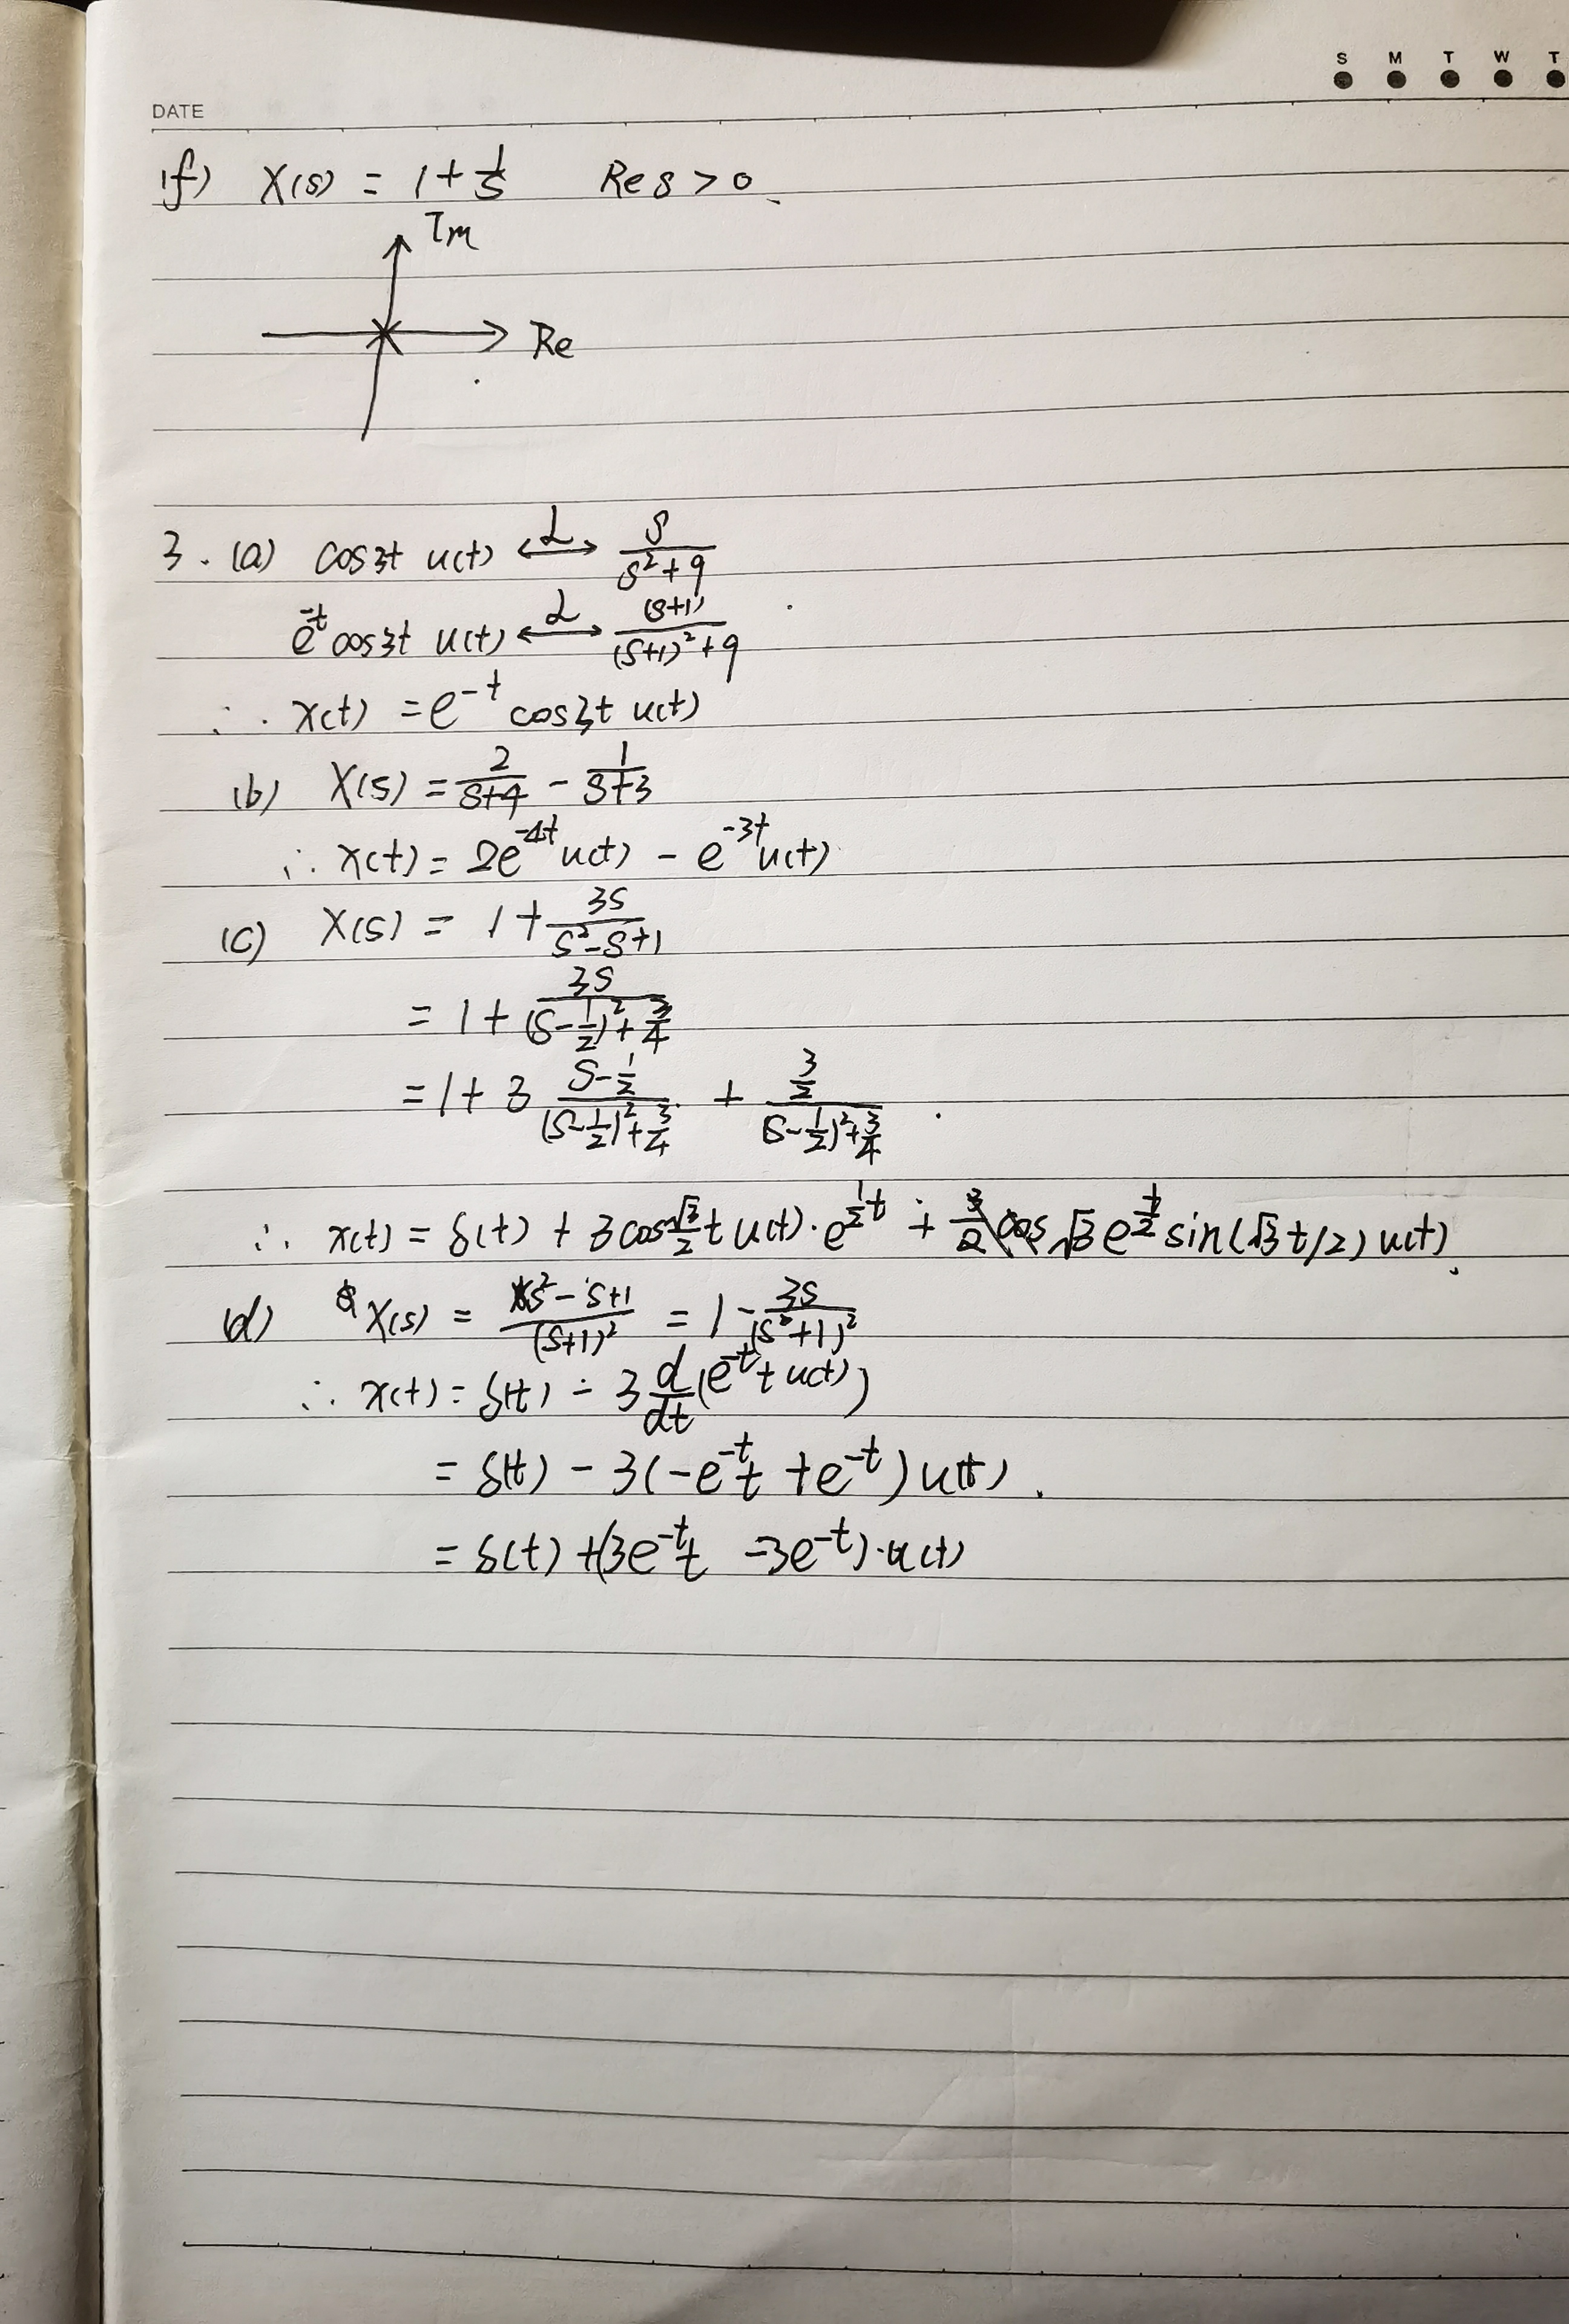 S M T W T
DATE
(f) X(s) = 1 + 1/s Re s > 0.
Im
Re
3. (a) cos3t u(t) ⟷ℒ s/(s²+9)
e^-t cos3t u(t) ⟷ℒ (s+1)/((s+1)²+9)
∴ x(t) = e^-t cos3t u(t)
(b) X(s) = 2/(s+4) - 1/(s+3)
∴ x(t) = 2e^-4t u(t) - e^-3t u(t)
(c) X(s) = 1 + 3s/(s²-s+1)
= 1 + 3s/((s-1/2)²+3/4)
= 1 + 3 (s-1/2)/((s-1/2)²+3/4) + (3/2)/((s-1/2)²+3/4)
∴ x(t) = δ(t) + 3cos√3/2 t u(t)·e^(1/2 t) + √3 e^(t/2) sin(√3t/2) u(t).
(d) X(s) = (s²-s+1)/(s+1)² = 1 - 3s/(s²+1)²
∴ x(t) = δ(t) - 3 d/dt (e^-t t u(t))
= δ(t) - 3(-e^-t t + e^-t) u(t).
= δ(t) + (3e^-t t - 3e^-t)·u(t)